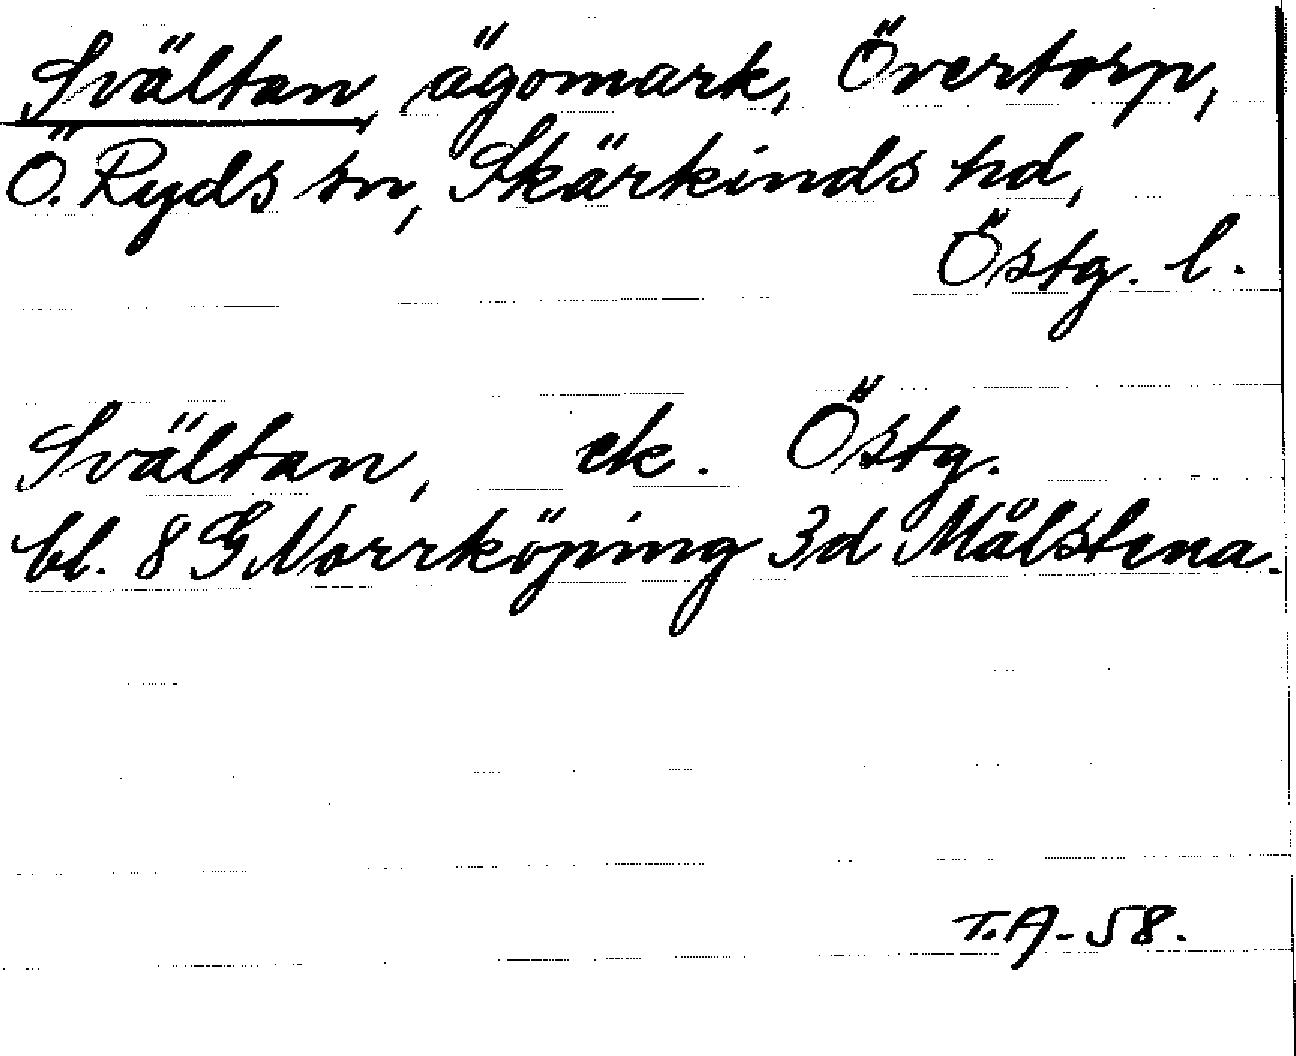 Svältan, ägomark, Övertorp,
Ö. Ryds sn, Skärkinds hd,
Östg. l.
Svältan, ek. Östg.
bl. 8 G Norrköping 3d Målstena.
T.A-58.